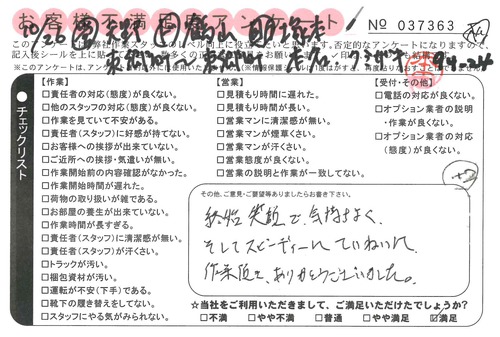 お客様不満足アンケート No 037363
記入後シールを上に貼
チェックリスト
【作業】
□責任者の対応(態度)が良くない。
□他のスタッフの対応(態度)が良くない。
□作業を見ていて不安がある。
□責任者(スタッフ)に好感が持てない。
□お客様への挨拶が出来ていない。
□ご近所への挨拶・気遣いが無い。
□作業開始前の内容確認がなかった。
□作業開始時間が遅れた。
□荷物の取り扱いが雑である。
□お部屋の養生が出来ていない。
□作業時間が長すぎる。
□責任者(スタッフ)に清潔感が無い。
□責任者(スタッフ)が汗くさい。
□トラックが汚い。
□梱包資材が汚い。
□運転が不安(下手)である。
□靴下の履き替えをしてない。
□スタッフにやる気がみられない。
【営業】
□見積もり時間に遅れた。
□見積もり時間が長い。
□営業マンに清潔感が無い。
□営業マンが煙草くさい。
□営業マンが汗くさい。
□営業態度が良くない。
□営業の説明と作業が一致してない。
【受付・その他】
□電話の対応が良くない。
□オプション業者の説明
・作業が良くない。
□オプション業者の対応
(態度)が良くない。
+2
その他、ご意見・ご要望等ありましたらお書き下さい。
終始笑顔で、気持ちよく、
そしてスピーディーに、ていねいに
作業頂き、ありがとうございました。
☆当社をご利用いただきまして、ご満足いただけたでしょうか?
□不満 □やや不満 □普通 □やや満足 ☑満足